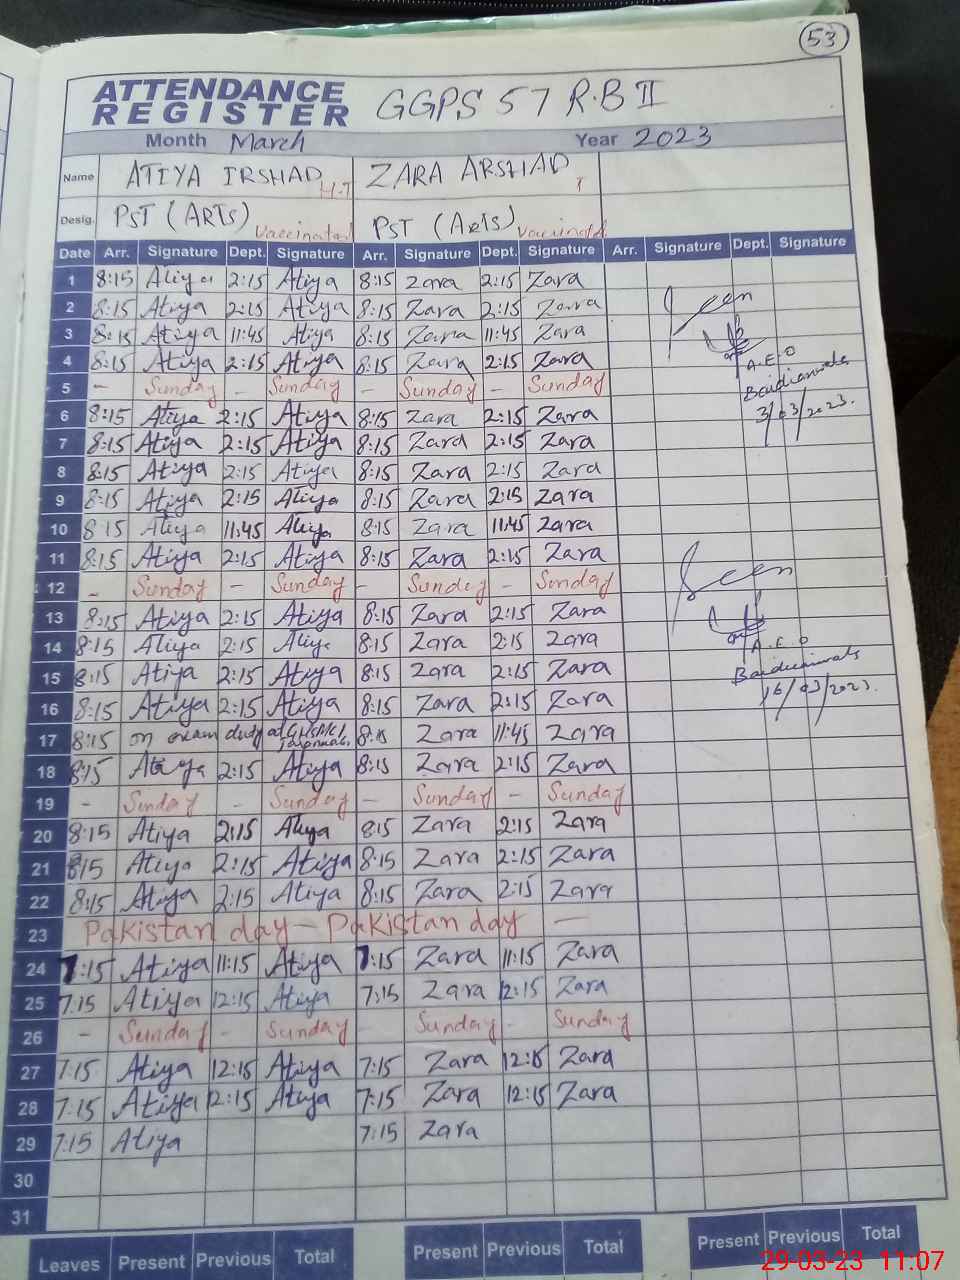 53
ATTENDANCE REGISTER GGPS 57 R.B II
Month March Year 2023
Name ATIYA IRSHAD H.T ZARA ARSHAD T
Desig. PST (ARTS) Vaccinated PST (Arts) Vaccinated
Date Arr. Signature Dept. Signature Arr. Signature Dept. Signature Arr. Signature Dept. Signature
1 8:15 Atiya 2:15 Atiya 8:15 Zara 2:15 Zara
2 8:15 Atiya 2:15 Atiya 8:15 Zara 2:15 Zara Seen
3 8:15 Atiya 11:45 Atiya 8:15 Zara 11:45 Zara
4 8:15 Atiya 2:15 Atiya 8:15 Zara 2:15 Zara A.E.O
5 - Sunday - Sunday - Sunday - Sunday
6 8:15 Atiya 2:15 Atiya 8:15 Zara 2:15 Zara 3/03/2023.
7 8:15 Atiya 2:15 Atiya 8:15 Zara 2:15 Zara
8 8:15 Atiya 2:15 Atiya 8:15 Zara 2:15 Zara
9 8:15 Atiya 2:15 Atiya 8:15 Zara 2:15 Zara
10 8:15 Atiya 11:45 Atiya 8:15 Zara 11:45 Zara
11 8:15 Atiya 2:15 Atiya 8:15 Zara 2:15 Zara
12 - Sunday - Sunday - Sunday - Sunday Seen
13 8:15 Atiya 2:15 Atiya 8:15 Zara 2:15 Zara
14 8:15 Atiya 2:15 Atiya 8:15 Zara 2:15 Zara A.E.O
15 8:15 Atiya 2:15 Atiya 8:15 Zara 2:15 Zara
16 8:15 Atiya 2:15 Atiya 8:15 Zara 2:15 Zara 16/03/2023.
17 8:15 on exam duty at 8:15 Zara 11:45 Zara
18 8:15 Atiya 2:15 Atiya 8:15 Zara 2:15 Zara
19 - Sunday - Sunday - Sunday - Sunday
20 8:15 Atiya 2:15 Atiya 8:15 Zara 2:15 Zara
21 8:15 Atiya 2:15 Atiya 8:15 Zara 2:15 Zara
22 8:15 Atiya 2:15 Atiya 8:15 Zara 2:15 Zara
23 Pakistan day - Pakistan day -
24 7:15 Atiya 11:15 Atiya 7:15 Zara 11:15 Zara
25 7:15 Atiya 12:15 Atiya 7:15 Zara 12:15 Zara
26 - Sunday - Sunday - Sunday - Sunday
27 7:15 Atiya 12:15 Atiya 7:15 Zara 12:15 Zara
28 7:15 Atiya 12:15 Atiya 7:15 Zara 12:15 Zara
29 7:15 Atiya 7:15 Zara
30
31
Leaves Present Previous Total Present Previous Total Present Previous Total
29-03-23 11:07